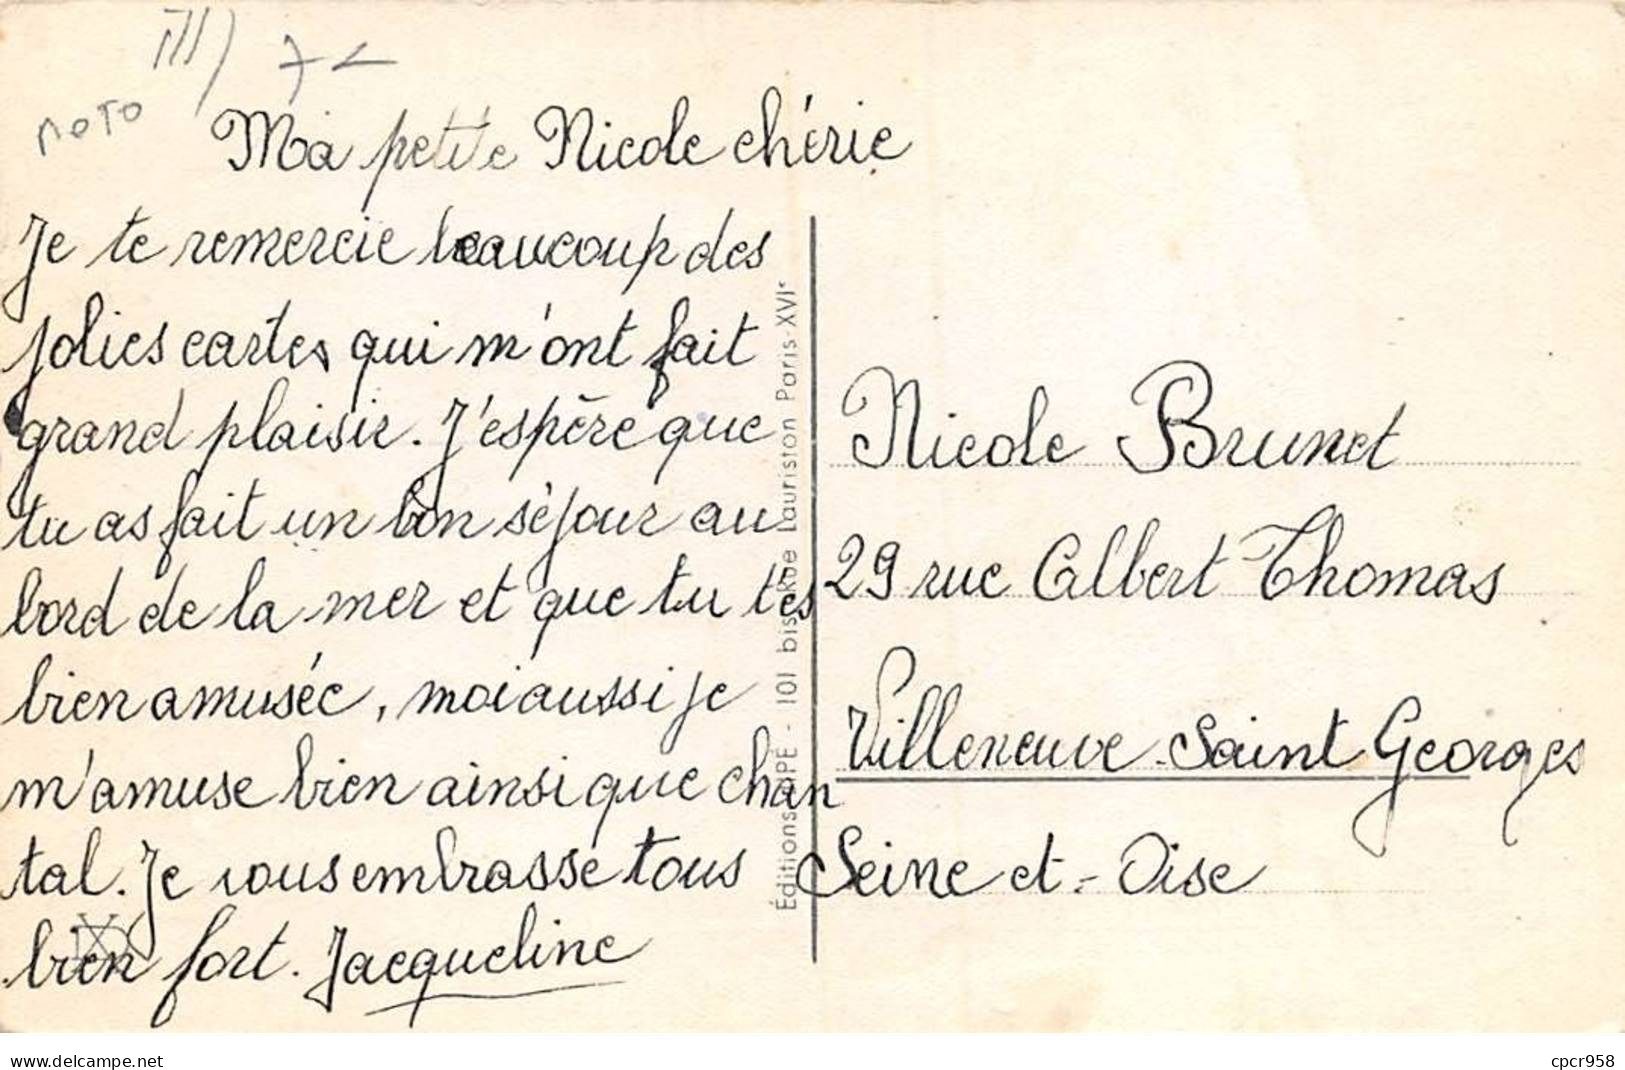 moto
Ma petite Nicole chérie
Je te remercie beaucoup des
jolies cartes qui m'ont fait
grand plaisir. J'espère que
tu as fait un bon séjour au
bord de la mer et que tu t'es
bien amusée, moi aussi je
m'amuse bien ainsi que chan
tal. Je vous embrasse tous
bien fort. Jacqueline
Éditions PÉ - 101 bis, Rue Lauriston Paris-XVIe
Nicole Brunet
29 rue Albert Thomas
Villeneuve-Saint Georges
Seine et-Oise
www.delcampe.net
cpcr958